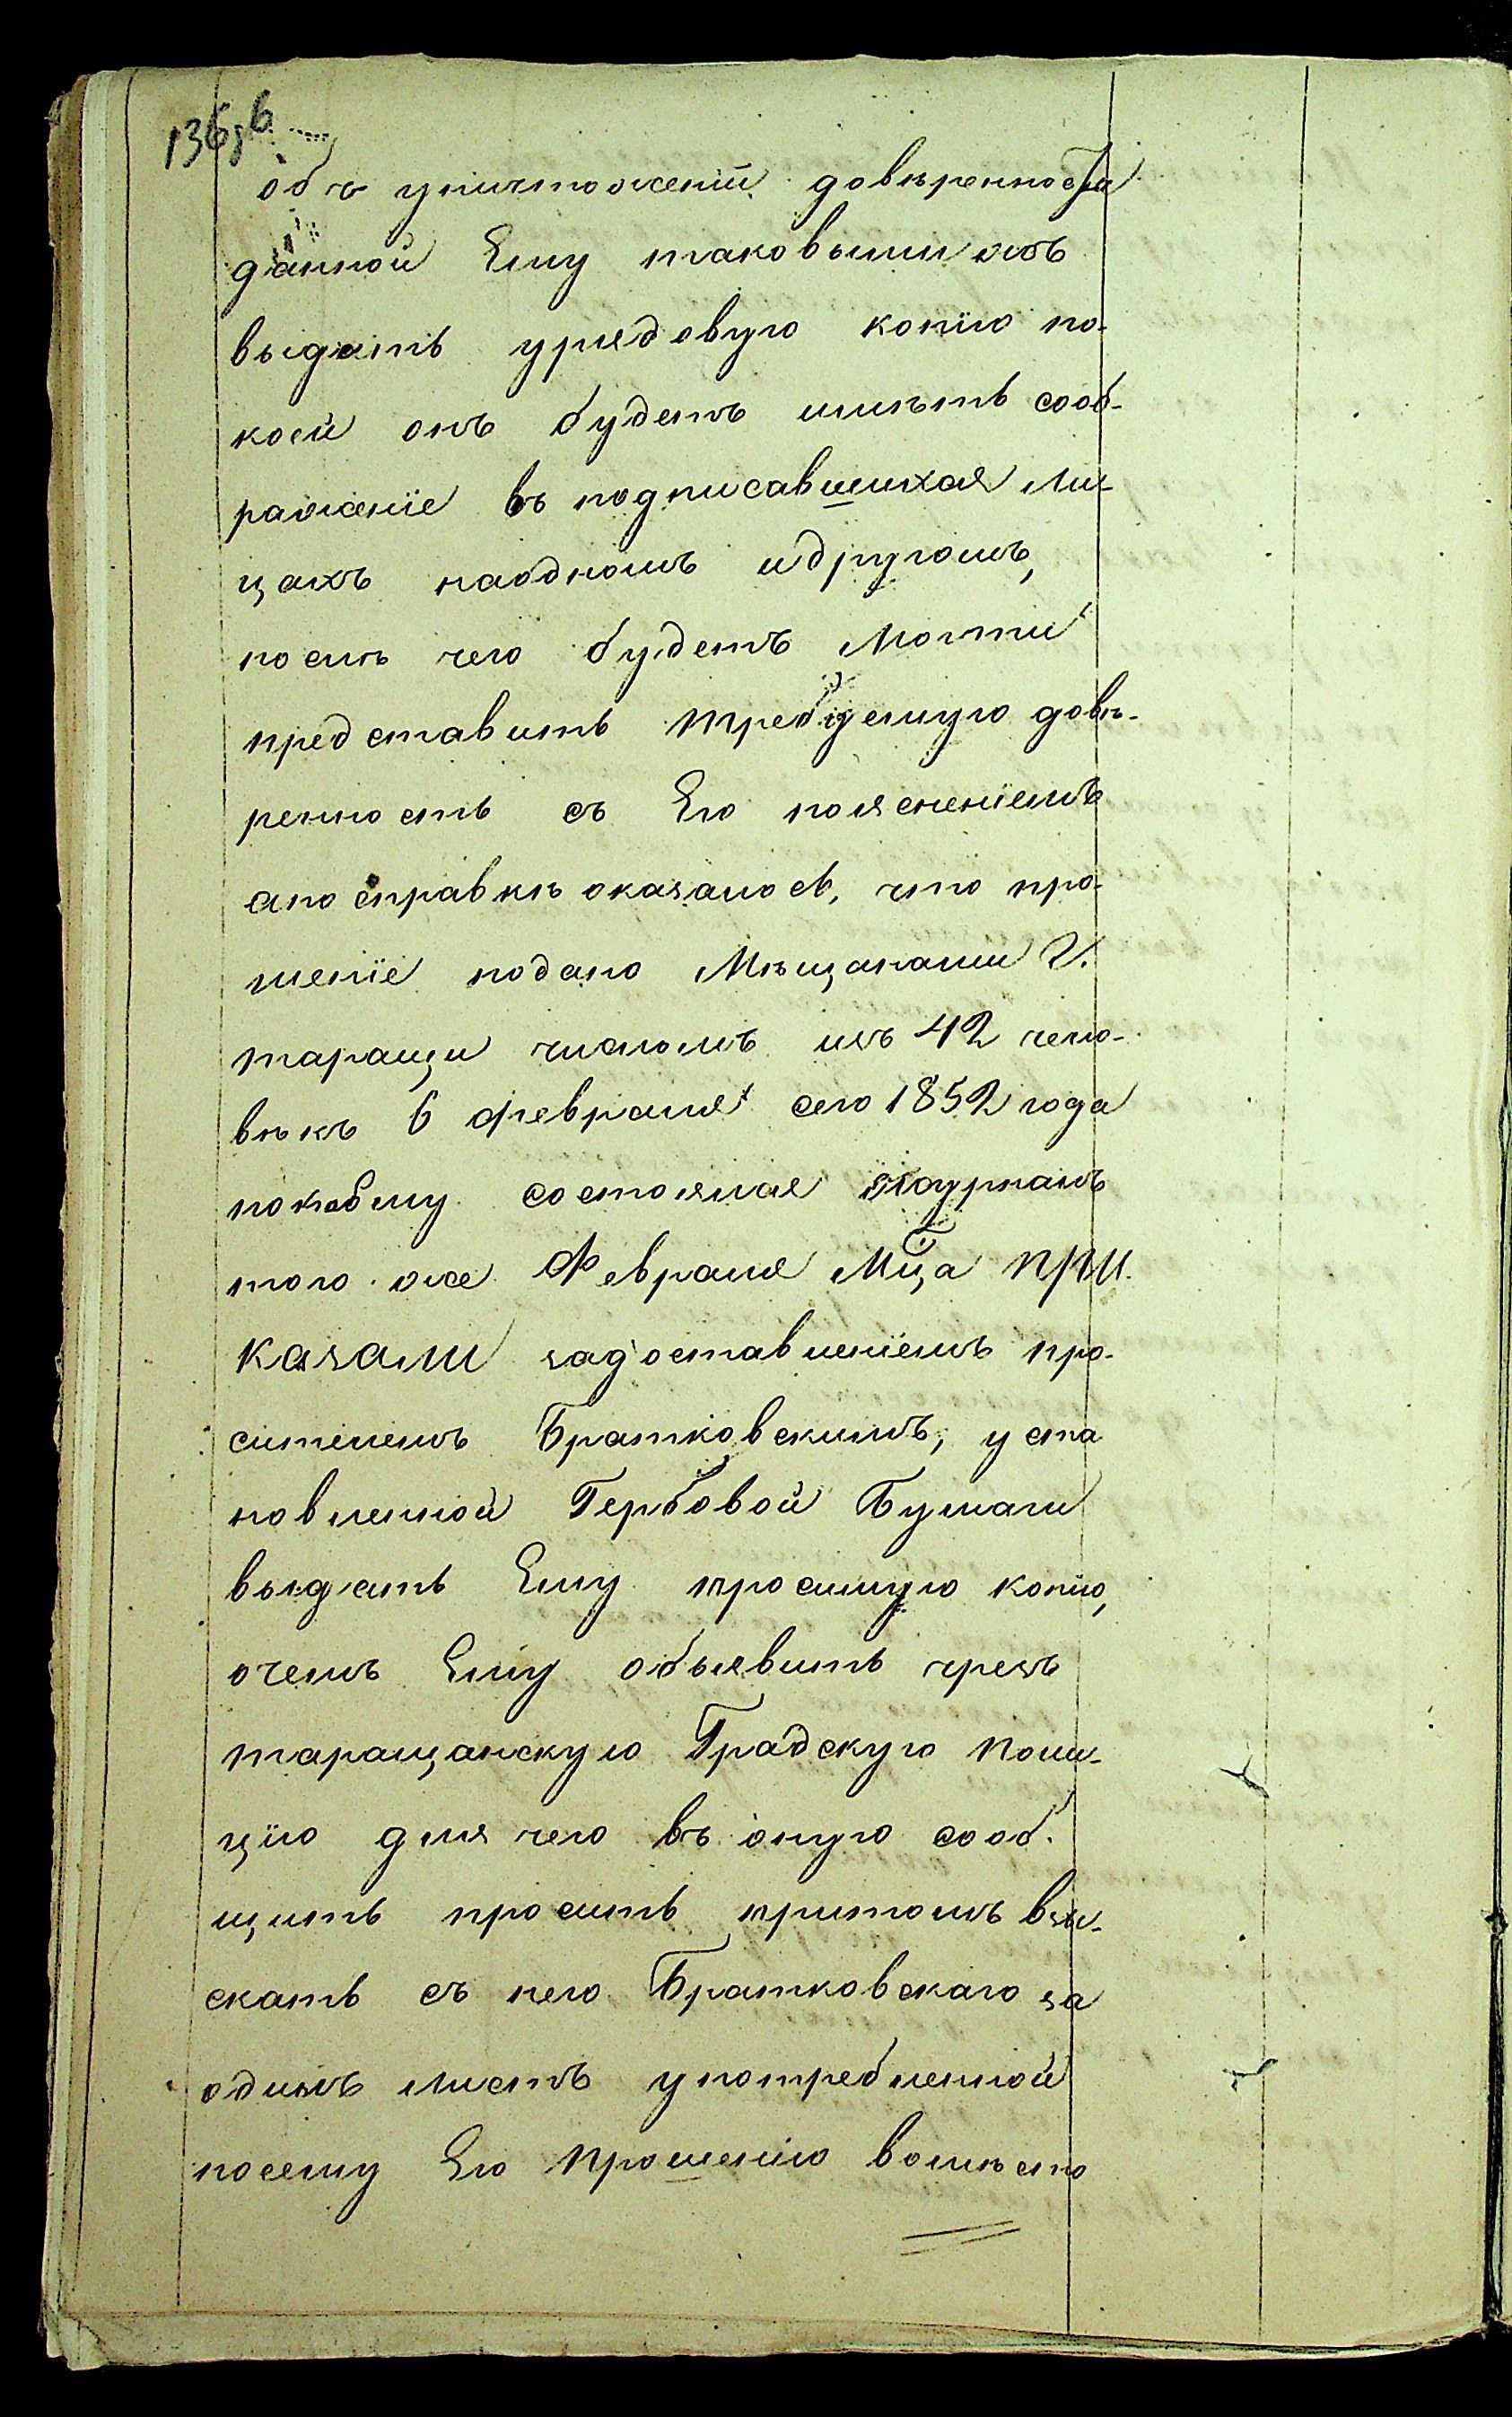 136 зв
объ уничтоженіи довѣренности
данной Ему таковымижъ
выдать урядовую копію по-
коей онъ будетъ имѣть сооб-
раженіе въ подписавшихся ли-
цахъ наодномъ идругомъ,
послѣ чего будетъ могти
представить требуемую довѣ-
ренность съ Его поясненіемъ
апо справкѣ оказалось, что про-
шеніе подано Мѣщанами Г.
таращи числомъ изъ 42 чело-
вѣкъ 6 февраля сего 1852 года
покоему состоялся журналъ
того же Февраля Мца при-
казали задоставленіемъ про-
сителемъ Братковскимъ, уста
новленной Гербовой Бумаги
выдать Ему просимую копію,
очемъ Ему объявить чрезъ
таращанскую Градскую поли-
цію для чего въ оную сооб-
щить просить притомъ взы-
скать съ него Братковскаго за
одинъ листъ употребленной
посему Его прошенію вомѣсто